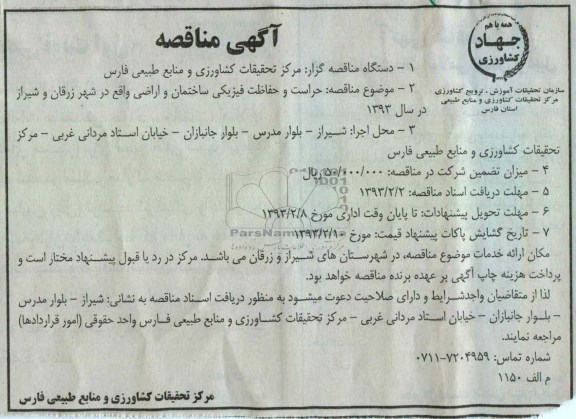 همه با هم
جهاد
کشاورزی
سازمان تحقیقات آموزش ، ترویج کشاورزی
مرکز تحقیقات کشاورزی و منابع طبیعی
استان فارس
آگهی مناقصه
۱ – دستگاه مناقصه گزار: مرکز تحقیقات کشاورزی و منابع طبیعی فارس
۲ – موضوع مناقصه: حراست و حفاظت فیزیکی ساختمان و اراضی واقع در شهر زرقان و شیراز
در سال ۱۳۹۳
۳ – محل اجرا: شیراز – بلوار مدرس – بلوار جانبازان – خیابان استاد مردانی غربی – مرکز
تحقیقات کشاورزی و منابع طبیعی فارس
۴ – میزان تضمین شرکت در مناقصه: ۵۰/۰۰۰/۰۰۰ ریال
۵ – مهلت دریافت اسناد مناقصه: ۱۳۹۳/۲/۲
۶ – مهلت تحویل پیشنهادات: تا پایان وقت اداری مورخ ۱۳۹۳/۲/۸
۷ – تاریخ گشایش پاکات پیشنهاد قیمت: مورخ ۱۳۹۳/۲/۱۰
مکان ارائه خدمات موضوع مناقصه، در شهرستان های شیراز و زرقان می باشد. مرکز در رد یا قبول پیشنهاد مختار است و
پرداخت هزینه چاپ آگهی بر عهده برنده مناقصه خواهد بود.
لذا از متقاضیان واجدشرایط و دارای صلاحیت دعوت میشود به منظور دریافت اسناد مناقصه به نشانی: شیراز – بلوار مدرس
– بلوار جانبازان – خیابان استاد مردانی غربی – مرکز تحقیقات کشاورزی و منابع طبیعی فارس واحد حقوقی (امور قراردادها)
مراجعه نمایند.
شماره تماس: ۷۲۰۴۹۵۹-۰۷۱۱
م الف ۱۱۵۰
مرکز تحقیقات کشاورزی و منابع طبیعی فارس